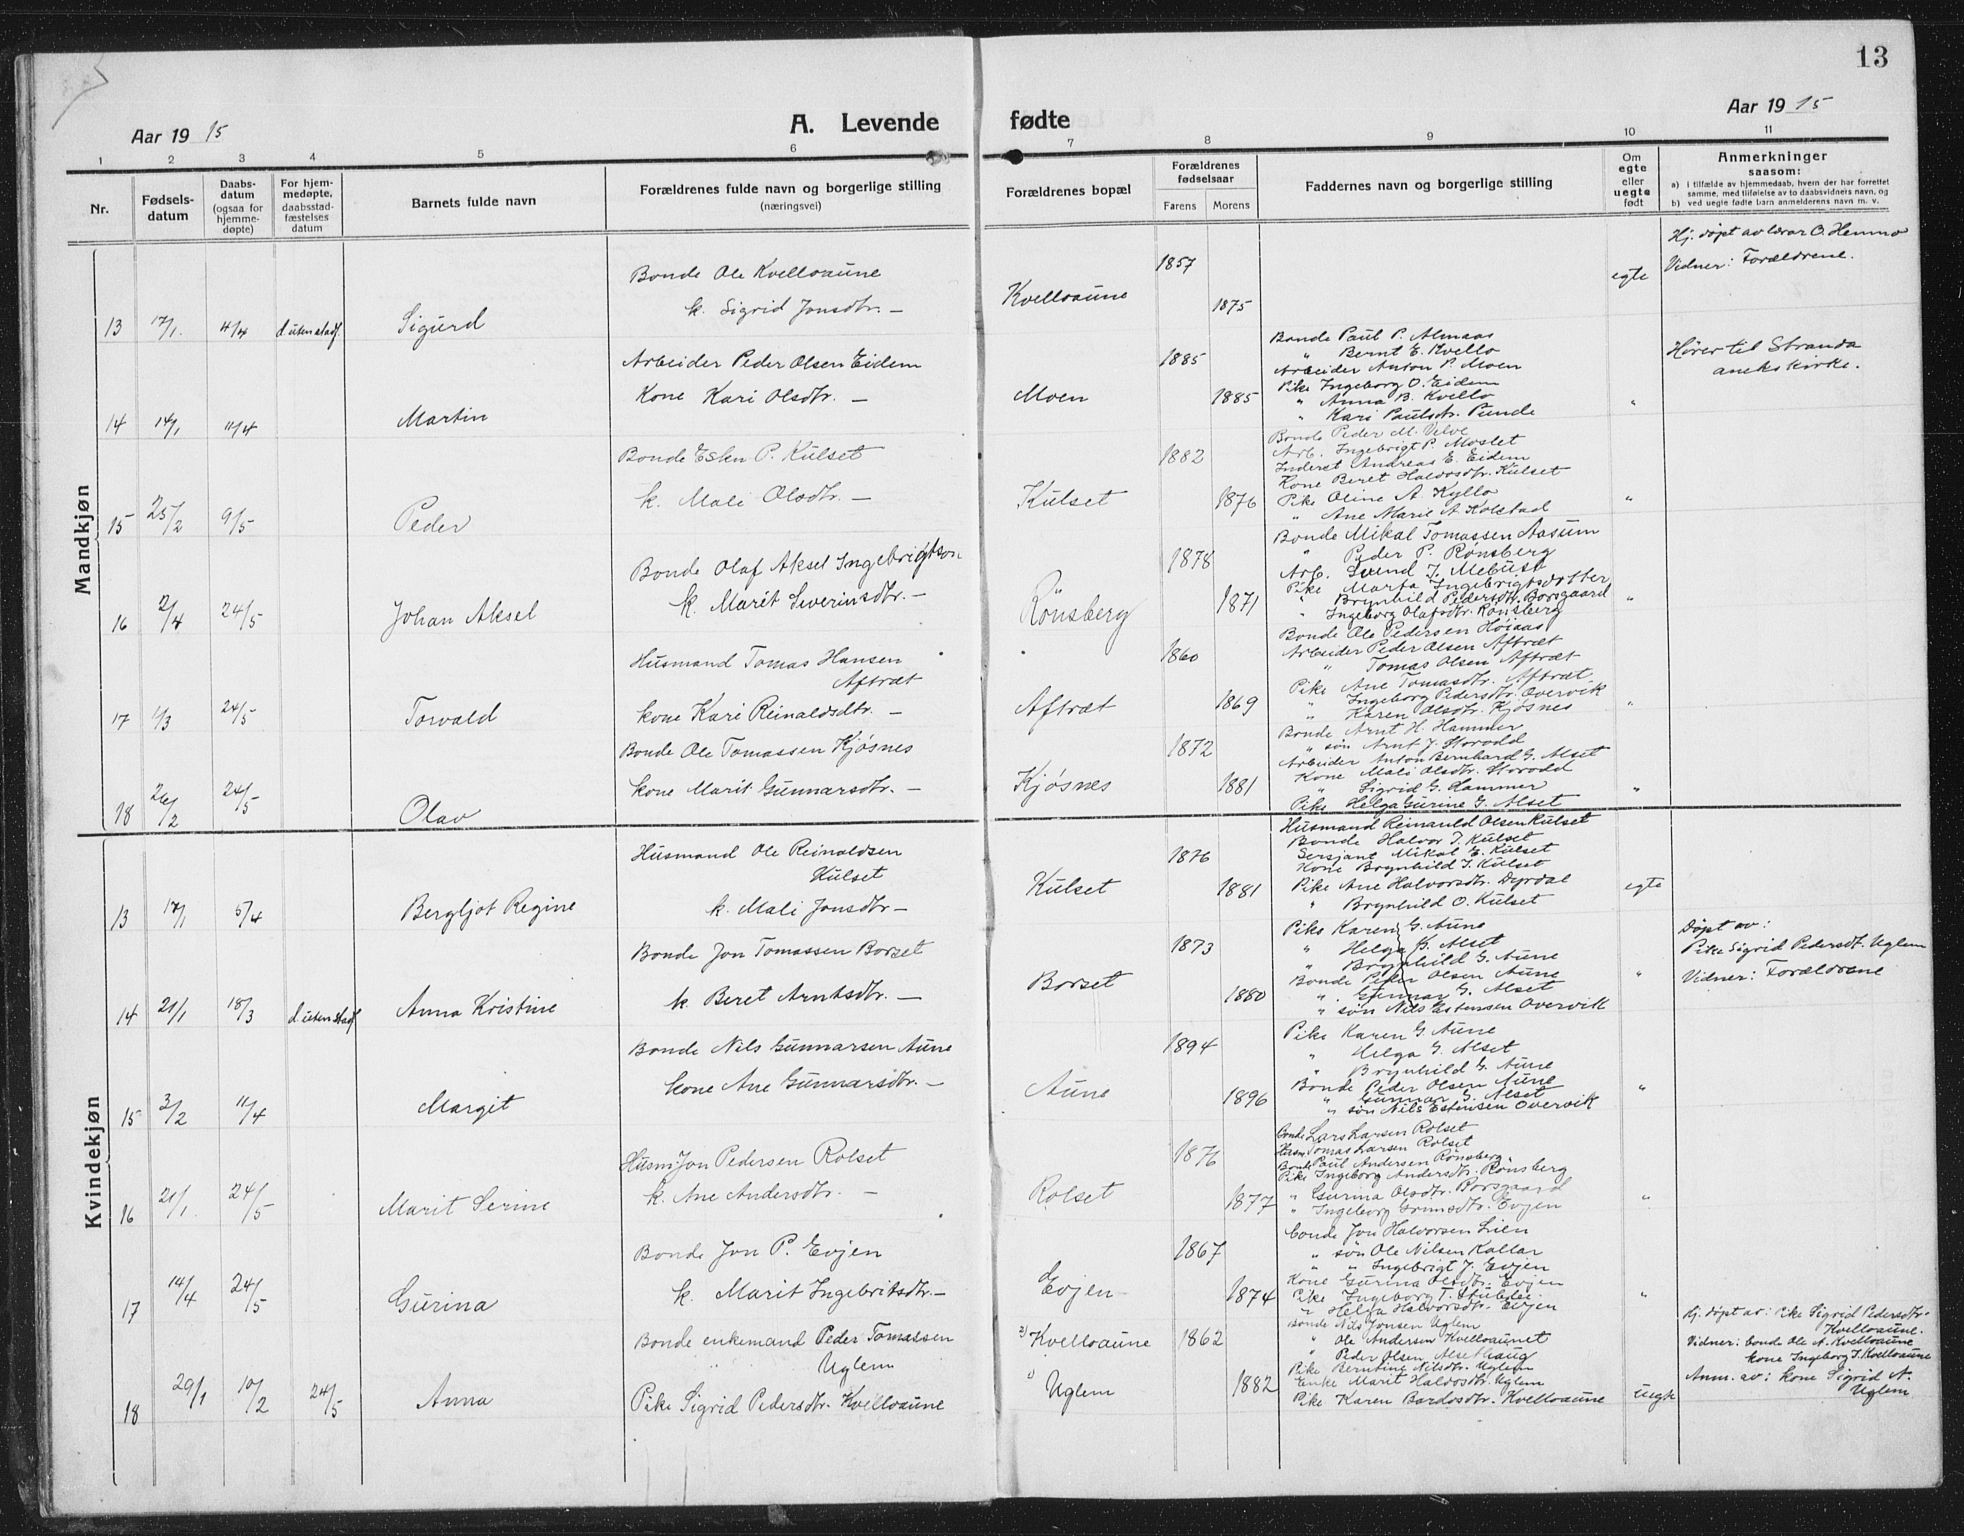 13
Aar 1915
A. Levende
fødte
Aar 1915
1 2 3 4 5 6 7 8 9 10 11
Nr.
Fødsels-
datum
Daabs-
datum
(ogsaa for
hjemme-
døpte)
For hjem-
medøpte,
daabsstad-
fæstelses
datum
Barnets fulde navn
Forældrenes fulde navn og borgerlige stilling
(næringsvei)
Forældrenes bopæl
Forældrenes
fødselsaar
Farens Morens
Faddernes navn og borgerlige stilling
Om
egte
eller
uegte
født
Anmerkninger
saasom:
a) i tilfælde av hjemmedaab, hvem der har forrettet
samme, med tilføielse av to daabsvidners navn, og
b) ved uegte fødte barn anmelderens navn m. v.
Mandkjøn
13 17/1. 4/4 d. uten stadf. Sigurd
Bonde Ole Kvelloaune
k. Sigrid Jonsdtr. —
Kvelloaune
1857
1875
egte
Hj. døpt av lærar O. Hemmo
Vidner: Forældrene.
14 14/1 11/4 Martin
Arbeider Peder Olsen Eidem
Kone Kari Olsdtr. —
Moen
1885
1885
Bonde Paul P. Almaas
" Bernt E. Kvello
Arbeider Anton P. Moen
Pike Ingeborg O. Eidem
" Anna B. Kvello
" Kari Paulsdtr. Punde
"
Hører til Stranda
anekskirke.
15 25/2 9/5 Peder
Bonde Esten P. Kulset
k. Mali Olsdtr. —
Kulset
1882
1876
Bonde Peder M. Velve
Arb. Ingebrigt P. Moslet
Inderst Andreas E. Eidem
Kone Beret Haldosdtr. Kulset
Pike Oline A. Kyllo
" Ane Marie A. Kolstad
"
16 2/4 24/5 Johan Aksel
Bonde Olaf Aksel Ingebrigtson
k. Marit Severinsdtr. —
Rønsberg
1878
1871
Bonde Mikal Tomassen Aasum
" Peder P. Rønsberg
Arb. Svend J. Mebust
Pike Marta Ingebrigtsdotter
" Brynhild Pedersdtr. Borsgaard
" Ingeborg Olafsdtr. Rønsberg
"
17 1/3 24/5 Torvald
Husmand Tomas Hansen
Aftræt
kone Kari Reinaldsdtr. —
Aftræt
1860
1869
Bonde Ole Pedersen Høiaas
Arbeider Peder Olsen Aftræt
" Tomas Olsen Aftræt
Pike Ane Tomasdtr. Aftræt
" Ingeborg Pedersdtr. Overvik
" Karen Olsdtr. Kjøsnes
"
18 26/2 24/5 Olav
Bonde Ole Tomassen Kjøsnes
kone Marit Gunnarsdtr. —
Kjøsnes
1872
1881
Bonde Arnt H. Hammer
" søn Arnt J. Stordal
Arbeider Anton Bernhard G. Alset
Kone Mali Olsdtr.
" Sigrid G. Hammer
Pike Helga Gurine G. Alset
"
Kvindekjøn
13 17/1 5/4 Bergljot Regine
Husmand Ole Reinaldsen
Kulset
k. Mali Jonsdtr —
Kulset
1876
1881
Husmand Reinauld Olsen Kulset
Bonde Halvor J. Kulset
Sersjant Mikal E. Kulset
Kone Brynhild J. Kulset
Pike Ane Halvorsdtr. Dyrdal
" Brynhild O. Kulset
egte
14 21/1 18/3 d. uten stadf Anna Kristine
Bonde Jon Tomassen Borset
k. Beret Arntsdtr. —
Borset
1873
1880
Pike Karen G. Aune
" Helga G. Alset
" Brynhild G. Aune
Bonde Peder Olsen Aune
" Gunnar G. Alset
" søn Nils Estensen Overvik
"
Døpt av:
Pike Sigrid Pedersdt. Uglem
Vidner: Forældrene
15 3/2 11/4 Margit
Bonde Nils Gunnarsen Aune
kone Ane Gunnarsdtr. —
Aune
1894
1896
Pike Karen G. Aune
" Helga G. Alset
" Brynhild G. Aune
Bonde Peder Olsen Aune
" Gunnar G. Alset
" søn Nils Estensen Overvik
"
16 21/1. 24/5 Marit Serine
Husm. Jon Pedersen Rolset
k. Ane Andersdtr. —
Rolset
1876
1877
Bonde Lars Larsen Rolset
Husm. Tomas Larsen Rolset
Bonde Paul Andersen Rønsberg
Pike Ingeborg Andersdtr. Rønsberg
" Gurina Olsdtr. Borsgaard
" Ingeborg Grimsdtr. Evjen
"
17 14/4 24/5 Gurina
Bonde Jon P. Evjen
k. Marit Ingebritsdtr. —
Evjen
1867
1874
Bonde Jon Halvorsen Lien
" søn Ole Nilsen Kallar
" " Ingebrigt J. Evjen
Kone Gurina Olsdtr. Evjen
Pike Ingeborg T. Stubsjøi
" Helga Halvorsdtr. Evjen
"
18 29/1 10/2 24/5 Anna
Bonde enkemand Peder Tomassen
Uglem
Pike Sigrid Pedersdtr. Kvelloaune
2) Kvelloaune
1) Uglem
1862
1882
Bonde Nils Jonsen Uglem
" Ole Andersen Kvelloaunet
" Peder Olsen Alsethaug
Pike Berntine Nilsdtr. Uglem
Enke Marit Haldosdtr. Uglem
Pike Karen Bardosdtr. Kvelloaune
uegte
Hj. døpt av: Pike Sigrid Pedersdtr.
Kvelloaune.
Vidner: bonde Ole A. Kvelloaune
kone Ingeborg J. Kvelloaune
Anm. av: kone Sigrid A.
Uglem